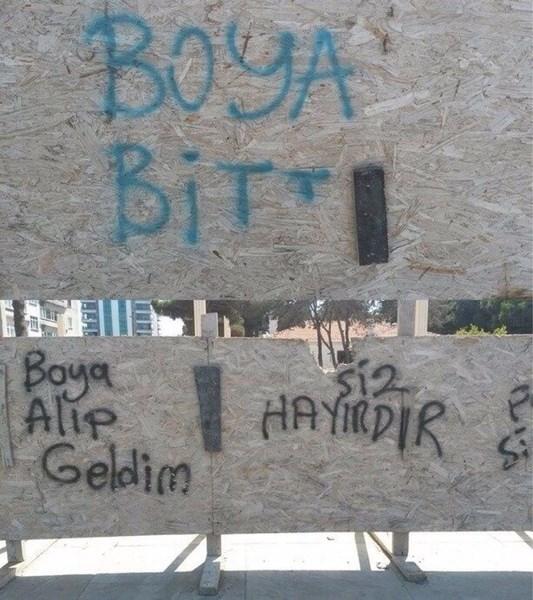 BOYA
BİTT
Boya
Alıp
Geldim
Siz
HAYIRDIR